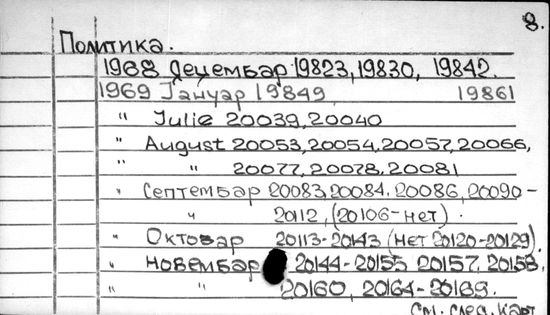 8.
Политика.
1968 Децембар 19823, 19830, 19842.
1969 Јануар 19849, 19861
" Julie 20039, 20040
" August 20053, 20054, 20057, 20066,
" " 20077, 20078, 20081
" Септембар 20083, 20084, 20086, 20090-
" 20112, (20106-нет).
" Октовар 20113-20143 (нет 20120-20129).
" Новембар 20144-20155 20157, 20158,
" " 20160, 20164-20169.
См. след. карт